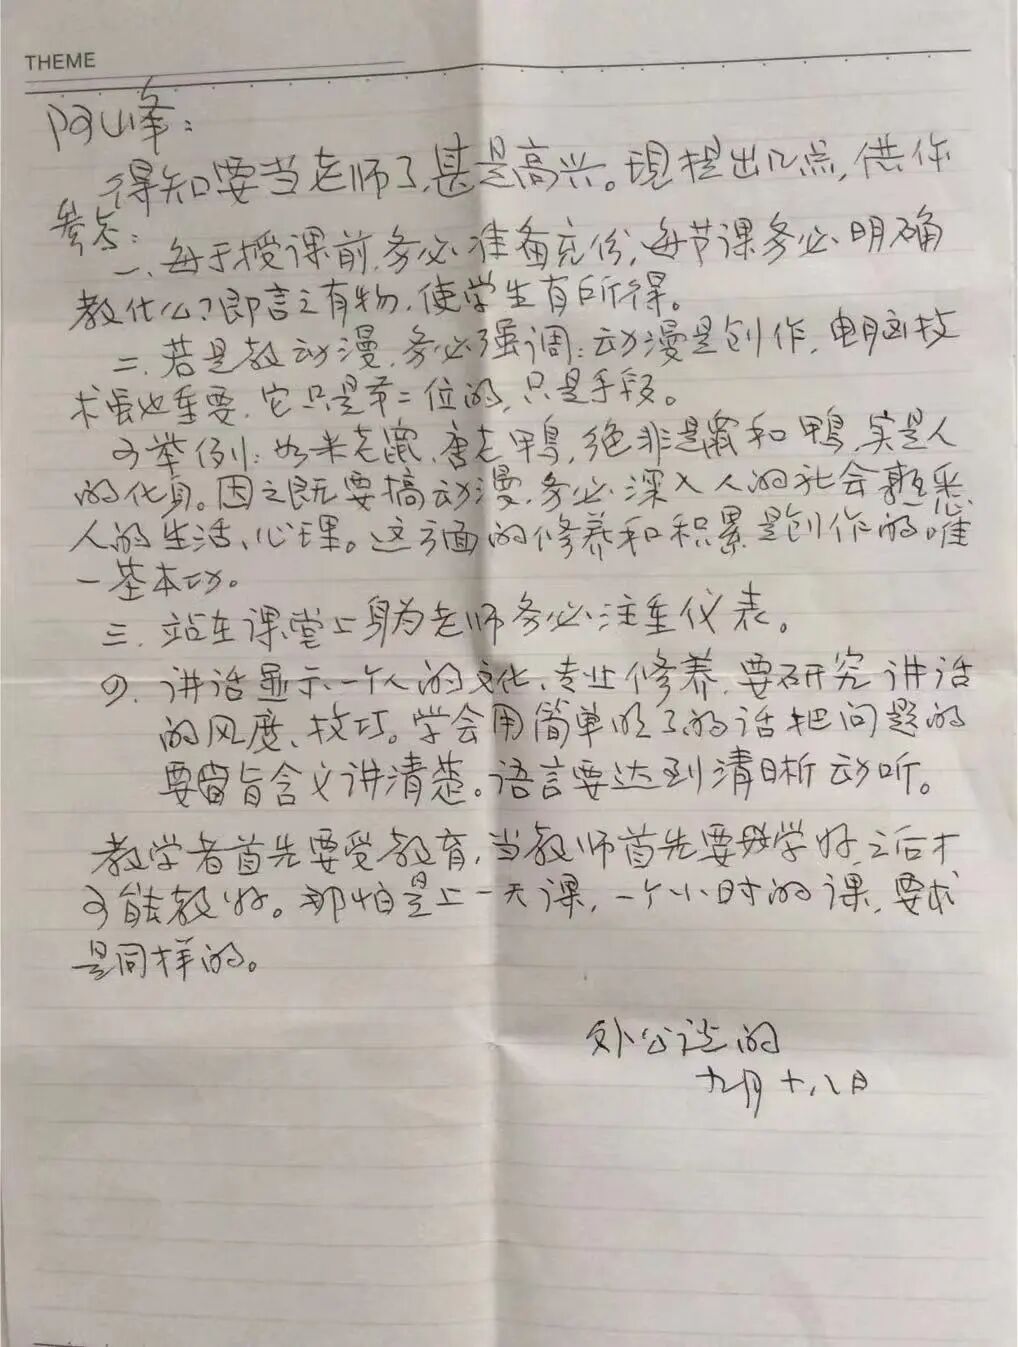 THEME
阿山峰：
得知要当老师了，甚是高兴。现提出几点，供你
参考：
一、每于授课前，务必准备充份，每节课务必明确
教什么？即言之有物，使学生有所得。
二、若是教动漫，务必强调：动漫是创作，电脑技
术虽也重要，它只是第二位的，只是手段。
可举例：如米老鼠、唐老鸭，绝非是鼠和鸭，实是人
的化身。因之既要搞动漫，务必深入人的社会熟悉
人的生活、心理。这方面的修养和积累是创作的唯
一基本功。
三、站在课堂上身为老师务必注重仪表。
四、讲话显示一个人的文化、专业修养，要研究讲话
的风度、技巧。学会用简单明了的话把问题的
要旨含义讲清楚。语言要达到清晰动听。
教学者首先要受教育，当教师首先要学好，之后才
可能教好。那怕是上一天课，一个小时的课，要求
是同样的。
外公说的
九月十八日